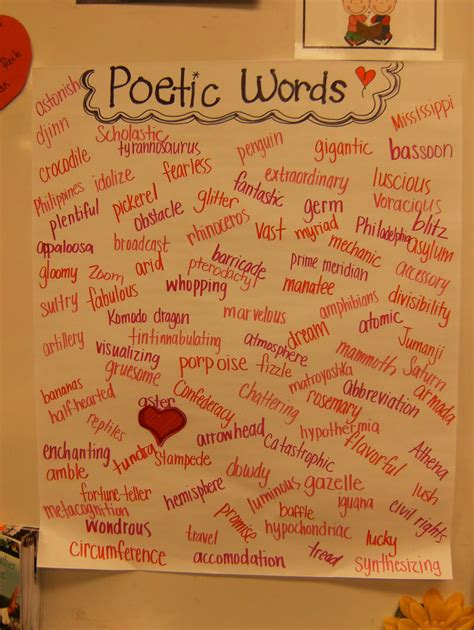 Poetic Words
astonish
Mississippi
djinn
Scholastic
tyrannosaurus
penguin
gigantic
bassoon
crocodile
fearless
extraordinary
luscious
Philippines
idolize
fantastic
Voracious
plentiful
pickerel
glitter
germ
blitz
obstacle
rhinoceros
vast
myriad
Philadelphia
asylum
appaloosa
broadcast
mechanic
gloomy
Zoom
arid
barricade
pterodactyl
prime meridian
accessory
sultry
fabulous
whopping
manatee
divisibility
Komodo dragon
marvelous
amphibians
atomic
artillery
tintinnabulating
dream
Jumanji
visualizing
atmosphere
gruesome
porpoise
fizzle
mammoth
Saturn
bananas
matryoshka
half-hearted
Confederacy
Chattering
Abbreviation
armada
aster
rosemary
reptiles
arrowhead
hypothermia
enchanting
Catastrophic
flavorful
Athena
amble
tundra
Stampede
dowdy
gazelle
fortune-teller
hemisphere
luminous
iguana
lush
metacognition
promise
baffle
civil rights
wondrous
travel
hypochondriac
lucky
circumference
accomodation
tread
synthesizing